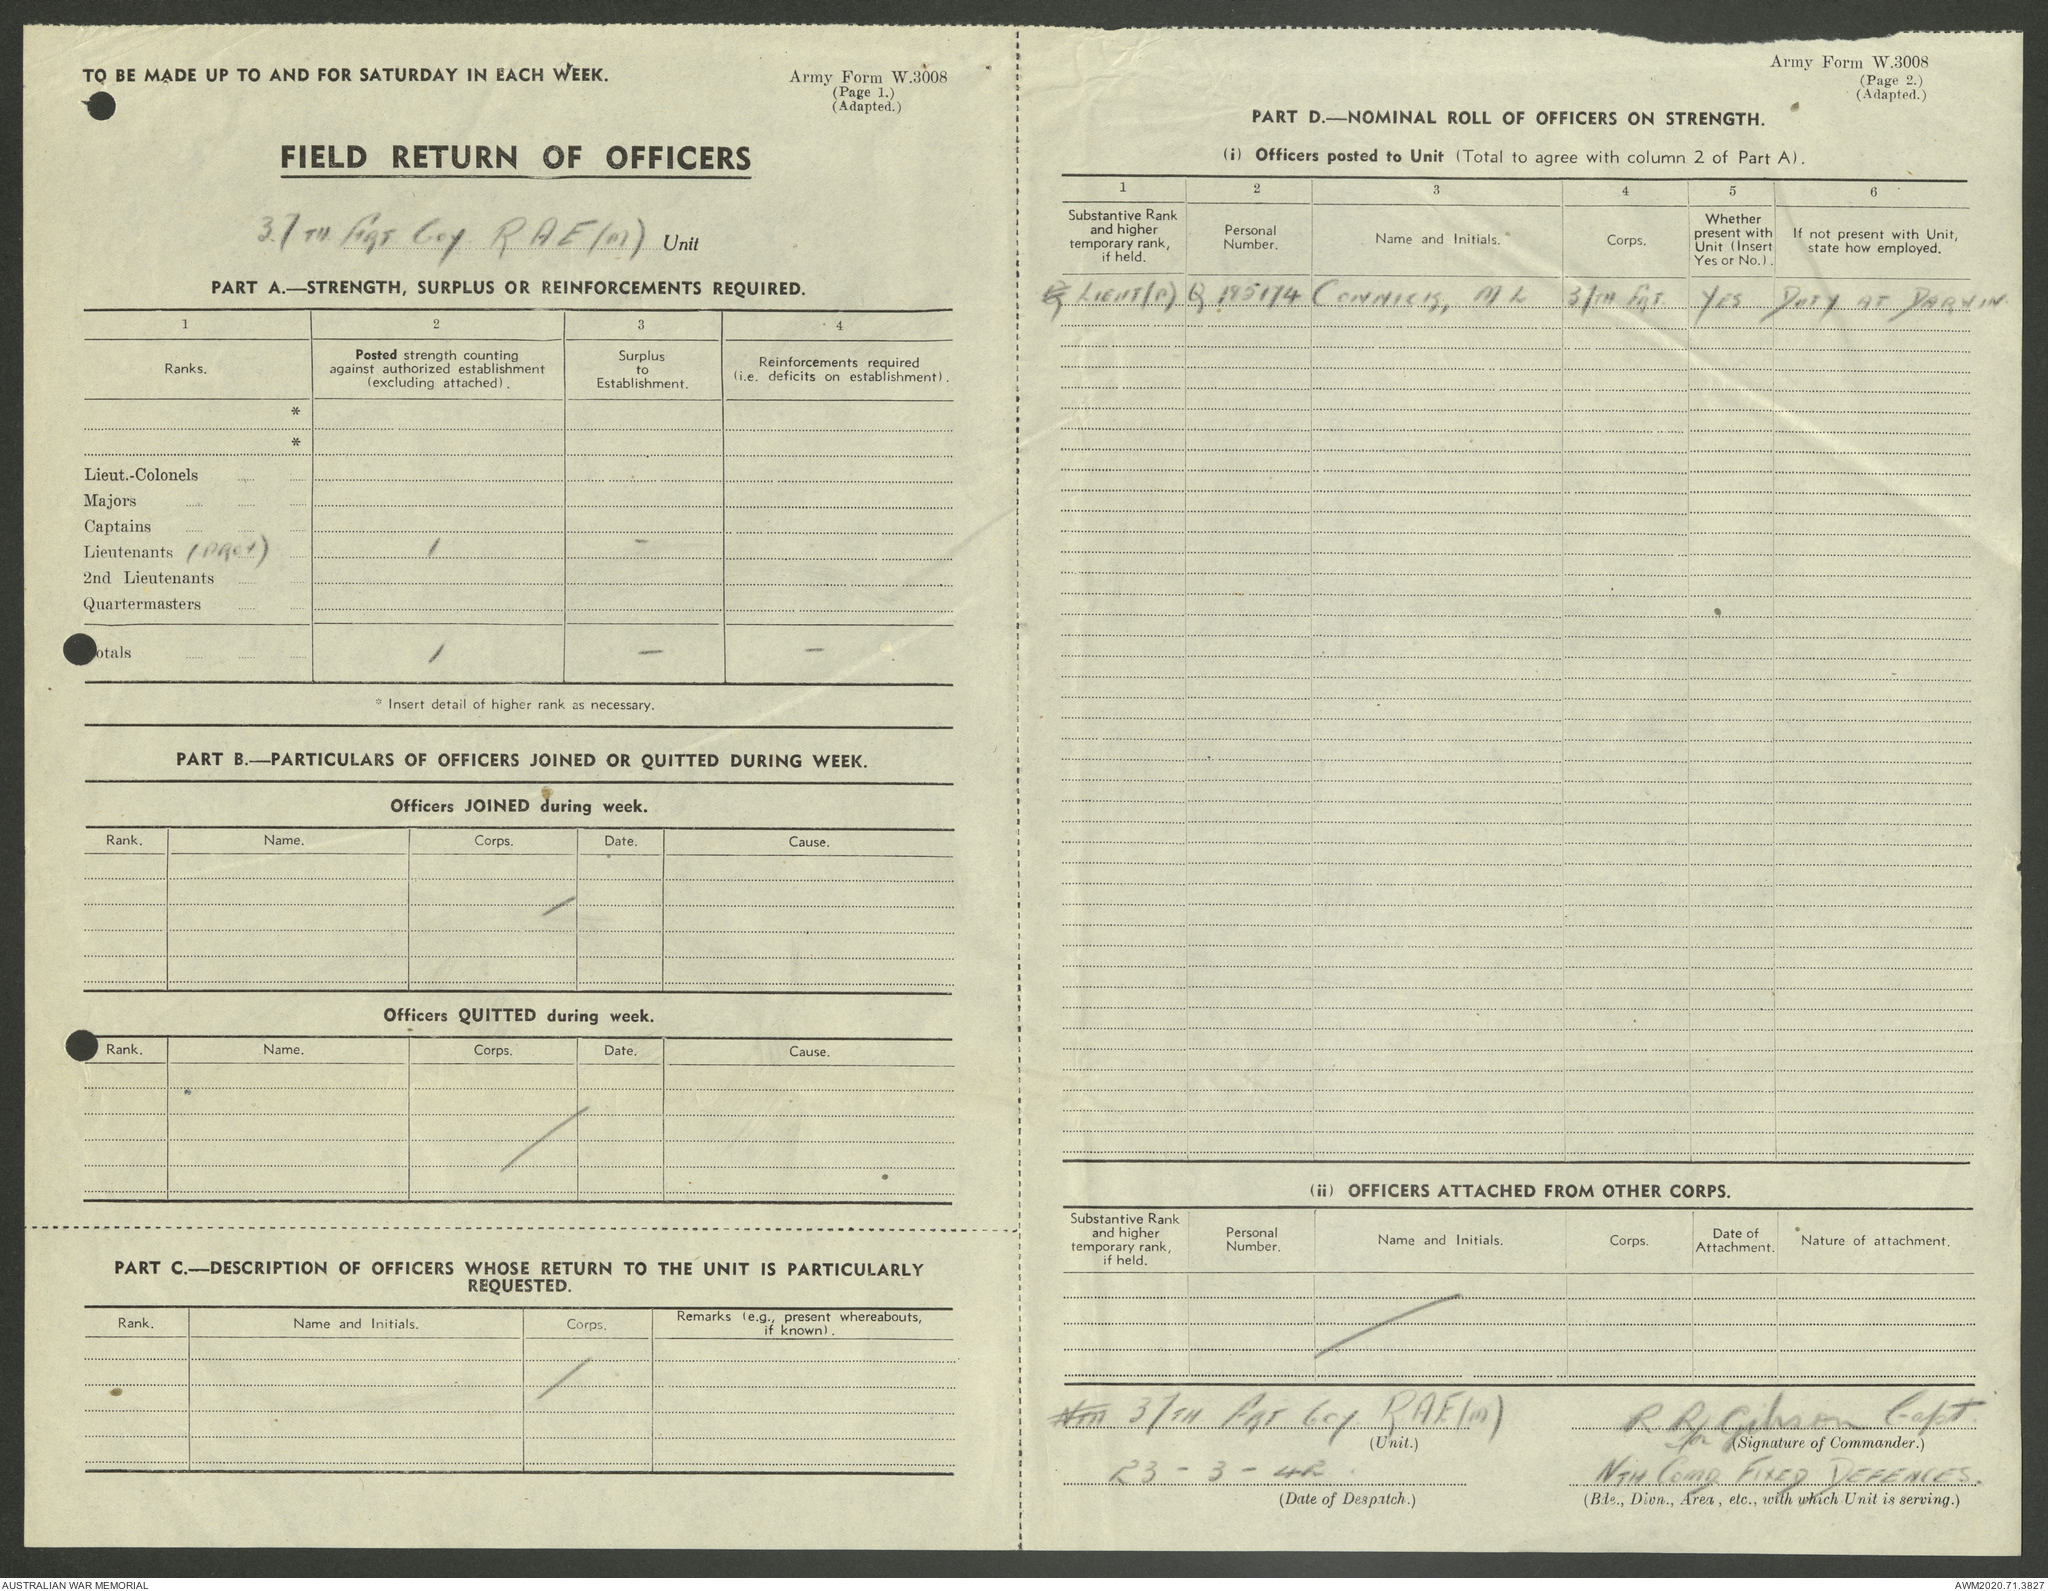 TO BE MADE UP TO AND FOR SATURDAY IN EACH WEEK.
Army Form W.3008
(Page 1.)
(Adapted.)
FIELD RETURN OF OFFICERS
37TH FRT Coy RAE(M) Unit
PART A.—STRENGTH, SURPLUS OR REINFORCEMENTS REQUIRED.
1 2 3 4
Ranks. Posted strength counting against authorized establishment (excluding attached). Surplus to Establishment. Reinforcements required (i.e. deficits on establishment).
*
*
Lieut.-Colonels
Majors
Captains
Lieutenants (PROV) 1 -
2nd Lieutenants
Quartermasters
otals 1 — —
* Insert detail of higher rank as necessary.
PART B.—PARTICULARS OF OFFICERS JOINED OR QUITTED DURING WEEK.
Officers JOINED during week.
Rank. Name. Corps. Date. Cause.
Officers QUITTED during week.
Rank. Name. Corps. Date. Cause.
PART C.—DESCRIPTION OF OFFICERS WHOSE RETURN TO THE UNIT IS PARTICULARLY
REQUESTED.
Rank. Name and Initials. Corps. Remarks (e.g., present whereabouts, if known).
Army Form W.3008
(Page 2.)
(Adapted.)
PART D.—NOMINAL ROLL OF OFFICERS ON STRENGTH.
(i) Officers posted to Unit (Total to agree with column 2 of Part A).
1 2 3 4 5 6
Substantive Rank and higher temporary rank, if held. Personal Number. Name and Initials. Corps. Whether present with Unit (Insert Yes or No.). If not present with Unit, state how employed.
LIEUT(P) Q 195174 M L 37TH FRT. YES DUTY AT DARWIN.
(ii) OFFICERS ATTACHED FROM OTHER CORPS.
Substantive Rank and higher temporary rank, if held. Personal Number. Name and Initials. Corps. Date of Attachment. Nature of attachment.
37TH FRT Coy. RAE(M)
(Unit.)
R R Gibson Capt.
for (Signature of Commander.)
23-3-42.
(Date of Despatch.)
NTH COMD FIXED DEFENCES.
(Bde., Divn., Area, etc., with which Unit is serving.)
AUSTRALIAN WAR MEMORIAL
AWM2020.71.3827